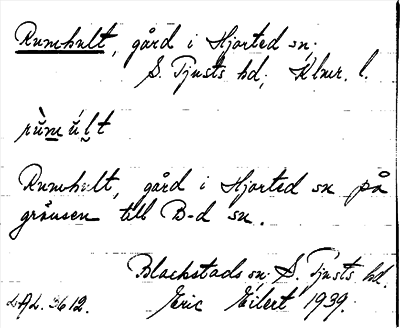 Rumhult, gård i Hjorted sn;
S. Tjusts hd; Klmr. l.
rùmúlt
Rumhult, gård i Hjorted sn på
gränsen till B-d sn.
Blackstads sn, S. Tjusts hd.
LAL. 3612. Eric Eilert 1939.